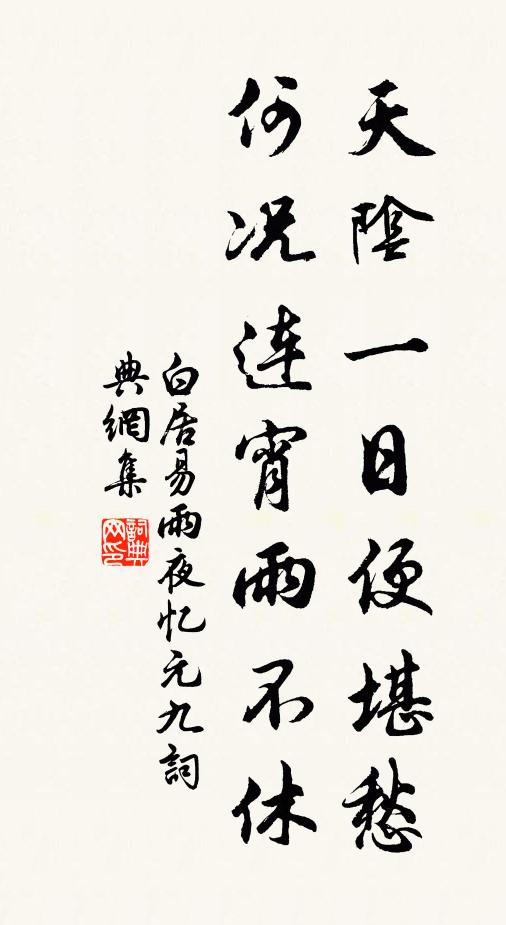 天陰一日便堪愁
何况連宵雨不休
白居易雨夜忆元九詞
典網集
詞典網印